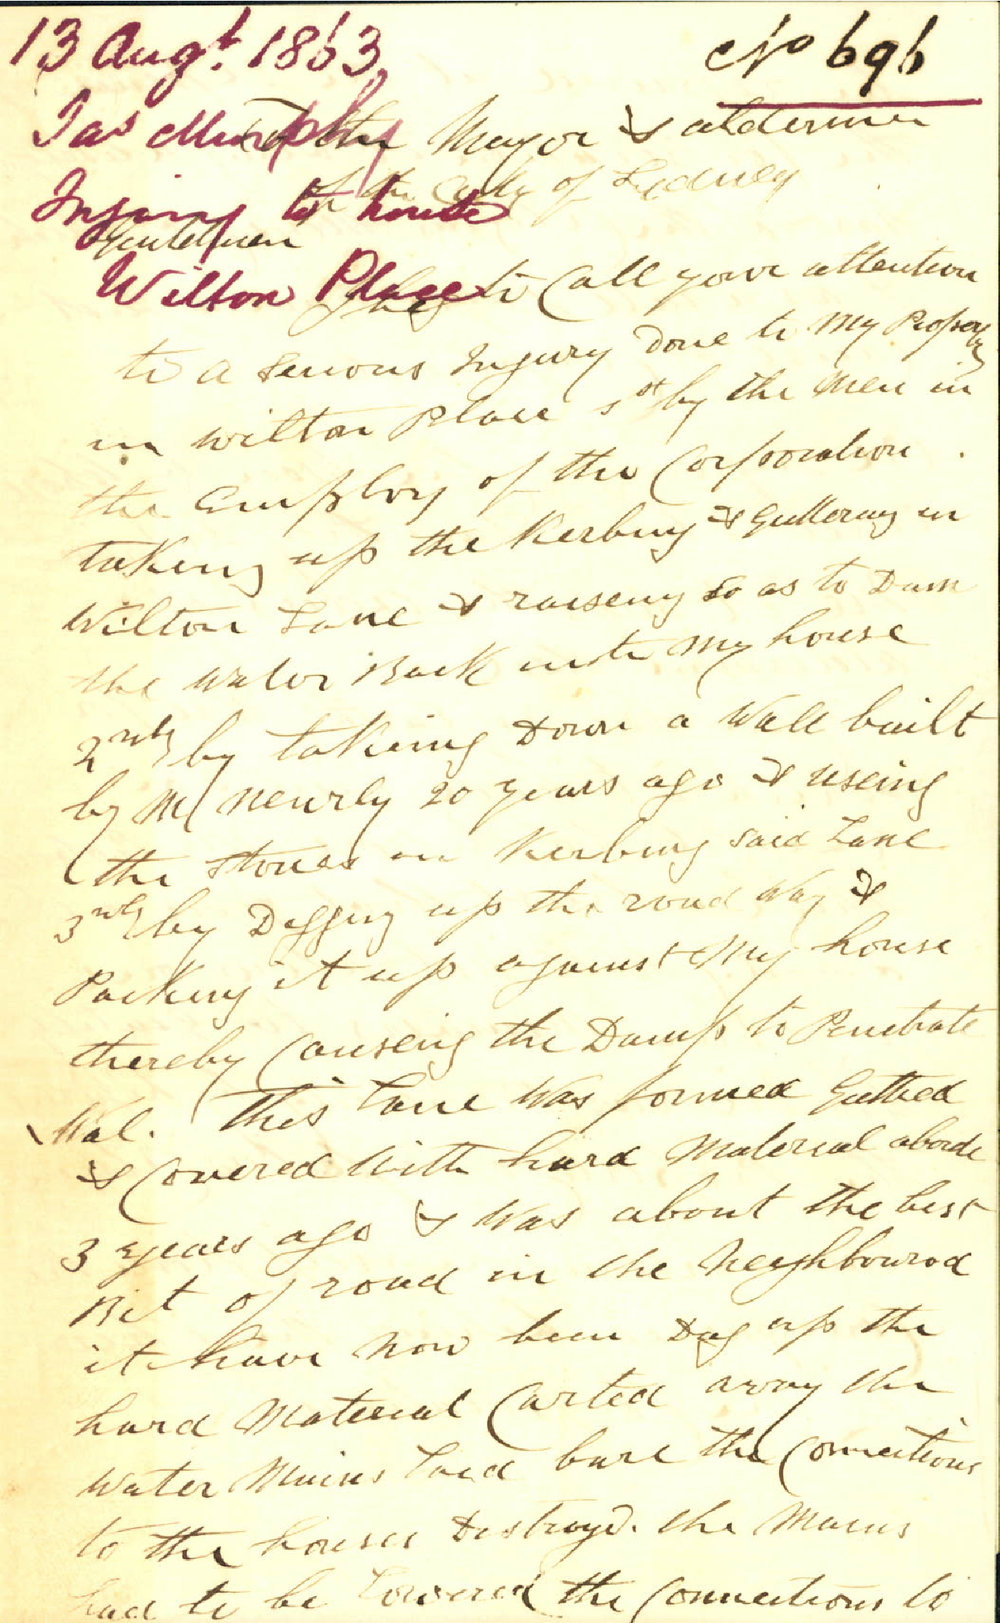 13 Augt. 1863
No 696
Jas Murphy
To the Mayor & aldermen
of the City of Sydney
Injury to house
Gentelmen
Wilton Place
I beg to Call your attention
to a Serious Injury Done to My Property
in Wilton Place 1st by the Men in
the Employ of the Corporation .
taking up the Kerbing & Guttering in
Wilton Lane & raiseing so as to Dam
the Water Back into My house
2ndly by taking Down a Wall built
by Me nearly 20 years ago & useing
the stones in Kerbing said Lane
3rdly by Digging up the road Way &
Packing it up against My house
thereby Causeing the Damp to Penetrate
Wal. This Lane Was formed Gutted
& Covered With hard Material aborte
3 years ago & Was about the best
Bit of road in the Neighbourod
it have now been Dug up the
hard Material Carted away the
Water Mains Laid bare the Connections
to the houses Destroyd. the Mains
had to be Lowered the Connections to